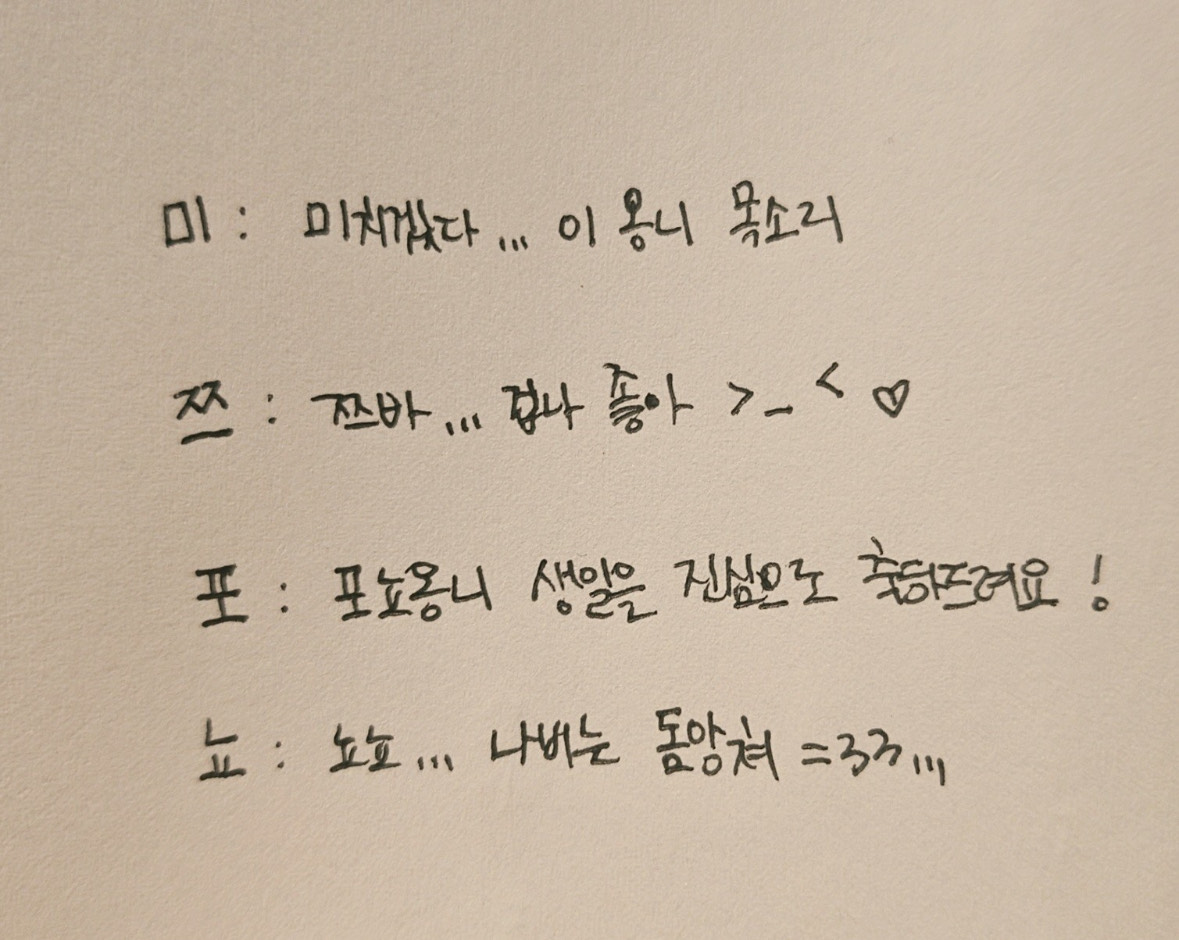 미 : 미치겠다... 이 옹니 목소리
쯔 : 쯔바... 겁나 좋아 >_< ♡
포 : 포뇨옹니 생일은 진심으로 축하드려요!
뇨 : 뇨뇨... 나버는 돔앙쳐 =33...